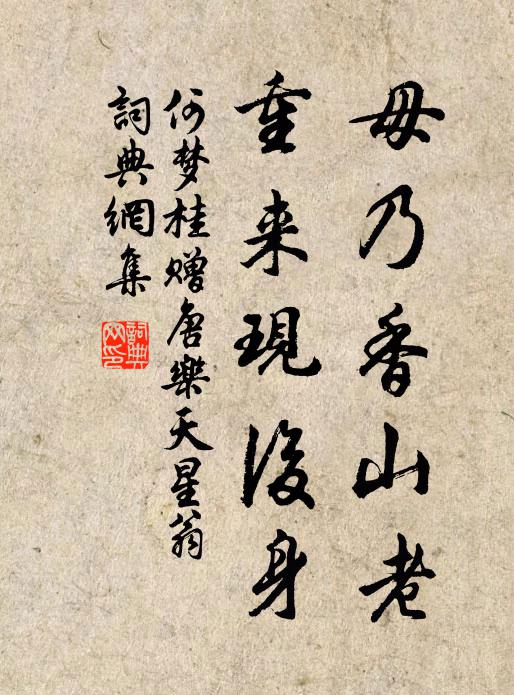 毋乃香山老
重来現後身
何梦桂赠唐樂天星翁
詞典網集
詞典網印